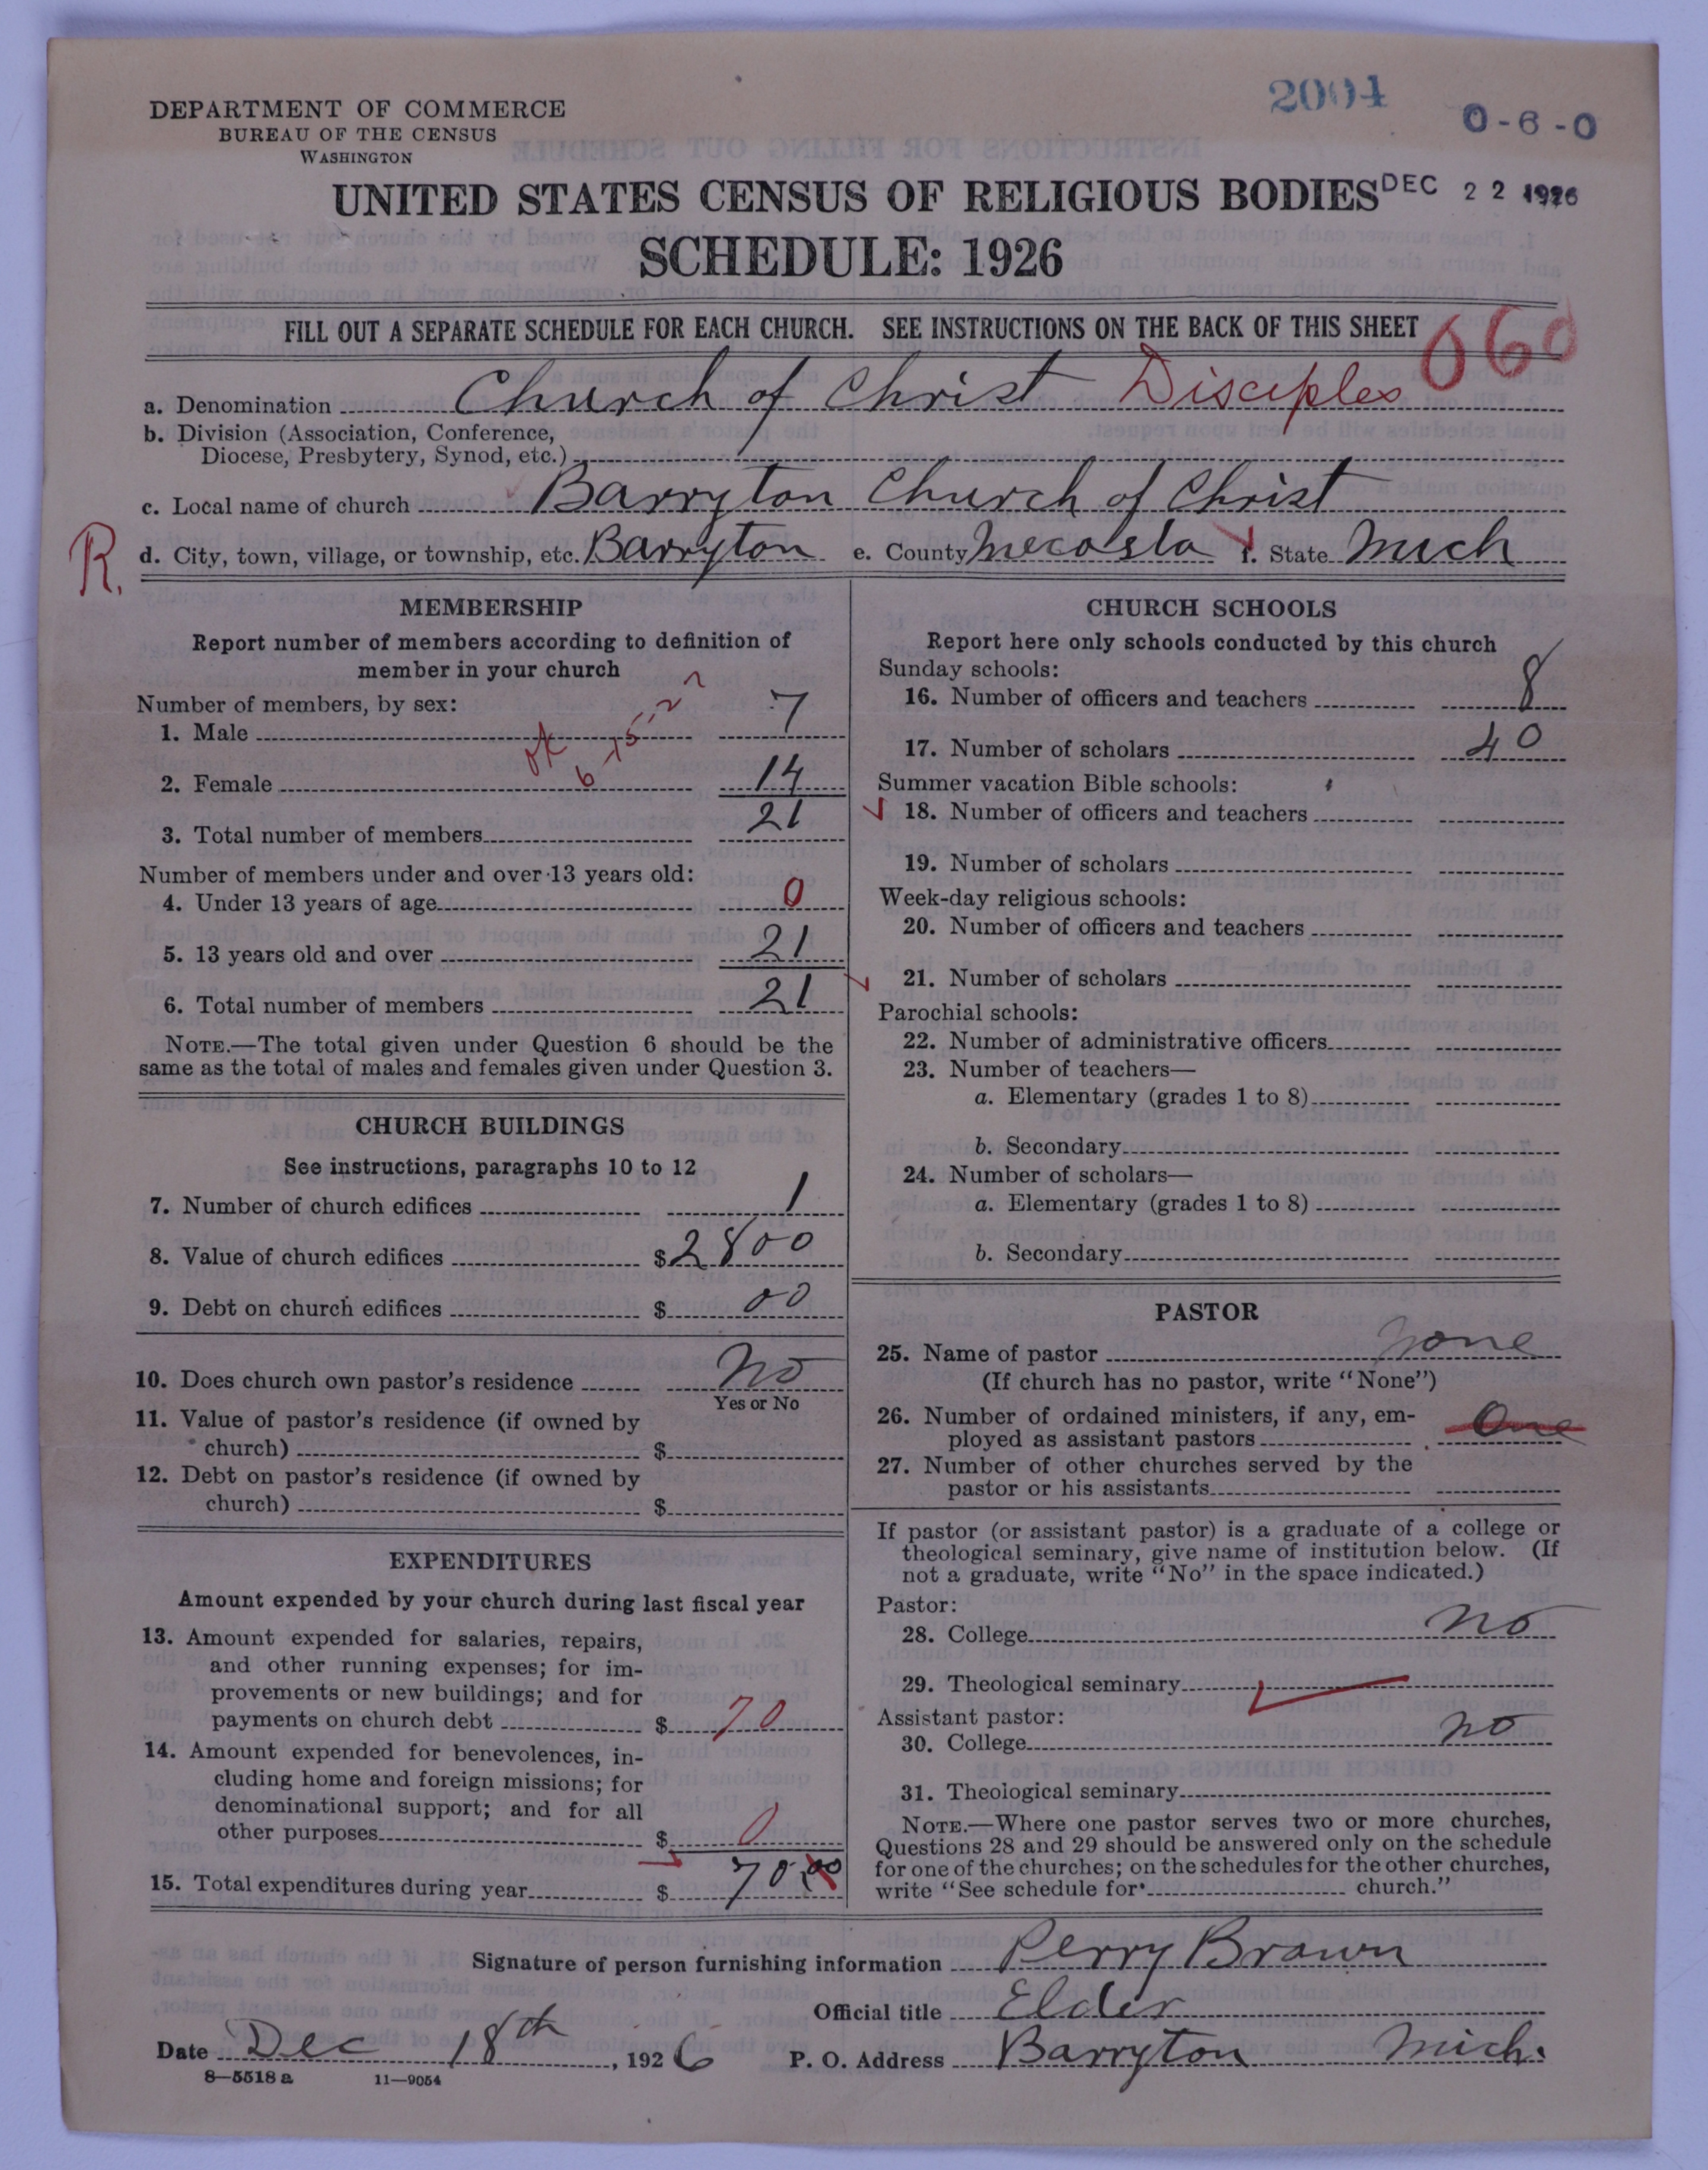 2004
0-6-0
DEPARTMENT OF COMMERCE
BUREAU OF THE CENSUS
WASHINGTON
UNITED STATES CENSUS OF RELIGIOUS BODIES
DEC 22 1926
SCHEDULE: 1926
FILL OUT A SEPARATE SCHEDULE FOR EACH CHURCH. SEE INSTRUCTIONS ON THE BACK OF THIS SHEET
a. Denomination Church of Christ Disciples
b. Division (Association, Conference,
Diocese, Presbytery, Synod, etc.)
c. Local name of church Barryton Church of Christ
R. d. City, town, village, or township, etc. Barryton e. County Mecosta f. State Mich
MEMBERSHIP
Report number of members according to definition of
member in your church
Number of members, by sex:
1. Male 7
ok 6-15-27
2. Female 14
3. Total number of members 21
Number of members under and over 13 years old:
4. Under 13 years of age 0
5. 13 years old and over 21
6. Total number of members 21
NOTE.—The total given under Question 6 should be the
same as the total of males and females given under Question 3.
CHURCH BUILDINGS
See instructions, paragraphs 10 to 12
7. Number of church edifices 1
8. Value of church edifices $2800
9. Debt on church edifices $ 00
10. Does church own pastor's residence No
Yes or No
11. Value of pastor's residence (if owned by
church) $
12. Debt on pastor's residence (if owned by
church) $
EXPENDITURES
Amount expended by your church during last fiscal year
13. Amount expended for salaries, repairs,
and other running expenses; for im-
provements or new buildings; and for
payments on church debt $ 70
14. Amount expended for benevolences, in-
cluding home and foreign missions; for
denominational support; and for all
other purposes $ 0
15. Total expenditures during year $ 70.00
CHURCH SCHOOLS
Report here only schools conducted by this church
Sunday schools:
16. Number of officers and teachers 8
17. Number of scholars 40
Summer vacation Bible schools:
18. Number of officers and teachers
19. Number of scholars
Week-day religious schools:
20. Number of officers and teachers
21. Number of scholars
Parochial schools:
22. Number of administrative officers
23. Number of teachers—
a. Elementary (grades 1 to 8)
b. Secondary
24. Number of scholars—
a. Elementary (grades 1 to 8)
b. Secondary
PASTOR
25. Name of pastor None
(If church has no pastor, write "None")
26. Number of ordained ministers, if any, em-
ployed as assistant pastors One
27. Number of other churches served by the
pastor or his assistants
If pastor (or assistant pastor) is a graduate of a college or
theological seminary, give name of institution below. (If
not a graduate, write "No" in the space indicated.)
Pastor:
28. College No
29. Theological seminary
Assistant pastor:
30. College No
31. Theological seminary
NOTE.—Where one pastor serves two or more churches,
Questions 28 and 29 should be answered only on the schedule
for one of the churches; on the schedules for the other churches,
write "See schedule for church."
Signature of person furnishing information Perry Brown
Official title Elder
Date Dec 18th, 1926 P. O. Address Barryton Mich.
8—5518 a 11—9054